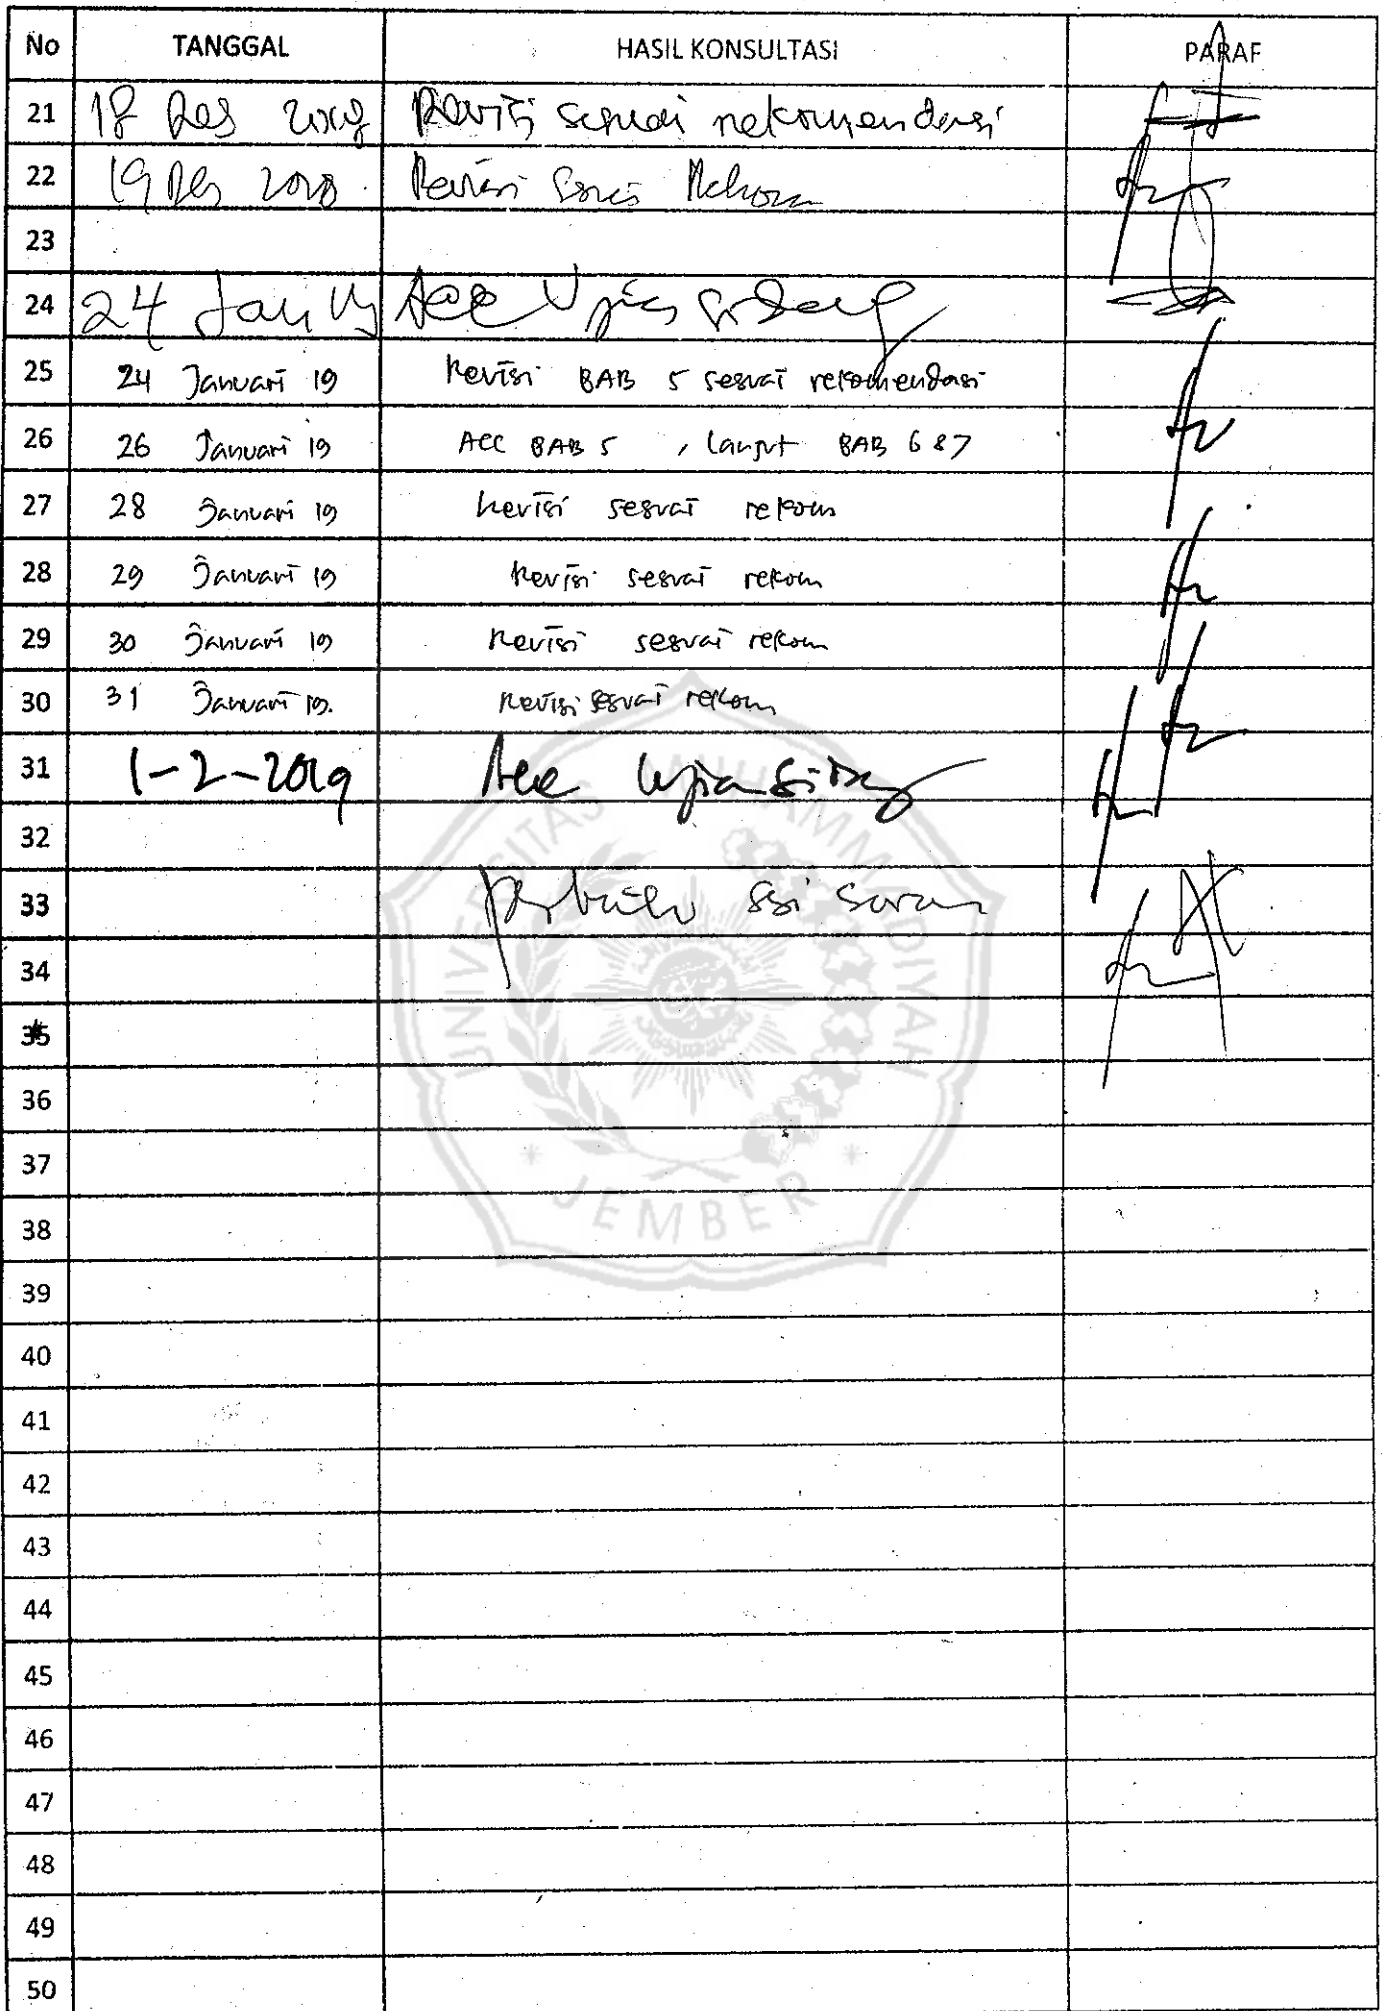 No TANGGAL HASIL KONSULTASI PARAF
21 18 Des 2018 Revisi sesuai rekomendasi
22 19 Des 2018 Revisi Rekom
23
24 24 Jan 19 Acc Ujian Sidang
25 24 Januari 19 Revisi BAB 5 sesuai rekomendasi
26 26 Januari 19 ACC BAB 5 , lanjut BAB 6 & 7
27 28 Januari 19 Revisi sesuai rekom
28 29 Januari 19 Revisi sesuai rekom
29 30 Januari 19 Revisi sesuai rekom
30 31 Januari 19. Revisi sesuai rekom
31 1-2-2019 Acc Ujian Sidang
32
33 saran
34
35
36
37
38
39
40
41
42
43
44
45
46
47
48
49
50
UNIVERSITAS MUHAMMADIYAH
JEMBER